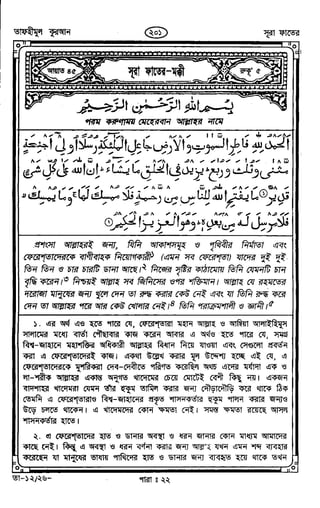 তাফহীমুল কুরআন
২০১
সূরা ফাতের
আয়াত ৪৫
সূরা ফাতের-মক্কী
রুকূ' ৫
بِسْمِ اللَّهِ الرَّحْمَٰنِ الرَّحِيمِ
পরম করুণাময় মেহেরবান আল্লাহর নামে
الْحَمْدُ لِلَّهِ فَاطِرِ السَّمٰوٰتِ وَالْاَرْضِ جَاعِلِ الْمَلٰٓئِكَةِ رُسُلًا اُولِىٓ اَجْنِحَةٍ
مَّثْنٰى وَثُلٰثَ وَرُبٰعَ ؕ يَزِيْدُ فِى الْخَلْقِ مَا يَشَآءُ ؕ اِنَّ اللّٰهَ عَلٰى كُلِّ شَىْءٍ
قَدِيْرٌ ۞ مَا يَفْتَحِ اللّٰهُ لِلنَّاسِ مِنْ رَّحْمَةٍ فَلَا مُمْسِكَ لَهَا ۚ وَمَا يُمْسِكْ ۙ
فَلَا مُرْسِلَ لَهٗ مِنْۢ بَعْدِهٖ ؕ وَهُوَ الْعَزِيْزُ الْحَكِيْمُ ۞
প্রশংসা আল্লাহরই জন্য, যিনি আকাশসমূহ ও পৃথিবীর নির্মাতা এবং
ফেরেশতাদেরকে বাণীবাহক নিয়োগকারী১ (এমন সব ফেরেশতা) যাদের দুই দুই
তিন তিন ও চার চারটি ডানা আছে।২ নিজের সৃষ্টির কাঠামোয় তিনি যেমনটি চান
বৃদ্ধি করেন।৩ নিশ্চয়ই আল্লাহ সব জিনিসের ওপর শক্তিমান। আল্লাহ যে রহমতের
দরোজা মানুষের জন্য খুলে দেন তা রুদ্ধ করার কেউ নেই এবং যা তিনি রুদ্ধ করে
দেন তা আল্লাহর পরে আর কেউ খোলার নেই।৪ তিনি পরাক্রমশালী ও জ্ঞানী।৫
১. এর অর্থ এও হতে পারে যে, ফেরেশতারা মহান আল্লাহ ও আম্বিয়া আলাইহিমুস
সালামের মধ্যে বার্তা পৌঁছাবার কাজ করেন আবার এ অর্থও হতে পারে যে, সমগ্র
বিশ্ব-জাহানে মহাশক্তির অধিকারী আল্লাহর বিধান নিয়ে যাওয়া এবং সেগুলো প্রবর্তন
করা এ ফেরেশতাদেরই কাজ। একথা উল্লেখ করার মূল উদ্দেশ্য হচ্ছে এই যে, এ
ফেরেশতাদেরকে মুশরিকরা দেব-দেবীতে পরিণত করেছিল অথচ এদের মর্যাদা এক ও
লা-শরীক আল্লাহর একান্ত অনুগত খাদেমের চেয়ে মোটেই বেশী কিছু নয়। একজন
বাদশাহর খাদেমরা যেমন তাঁর হুকুম তামিল করার জন্য দৌড়াদৌড়ি করে থাকে ঠিক
তেমনি এ ফেরেশতারাও বিশ্ব-জাহানের প্রকৃত শাসনকর্তার হুকুম পালন করার জন্যও
উড়ে চলতে থাকেন। এ খাদেমদের কোন ক্ষমতা নেই। সমস্ত ক্ষমতা রয়েছে আসল
শাসনকর্তার হাতে।
২. এ ফেরেশতাদের হাত ও ডানার অবস্থা ও ধরন জানার কোন মাধ্যম আমাদের
কাছে নেই। কিন্তু এ অবস্থা ও ধরন বর্ণনা করার জন্য আল্লাহ যখন এমন শব্দ ব্যবহার
করেছেন যা মানুষের ভাষায় পাখিদের হাত ও ডানার জন্য ব্যবহৃত হয়ে থাকে তখন
তা-১২/২৬-
পারা : ২২